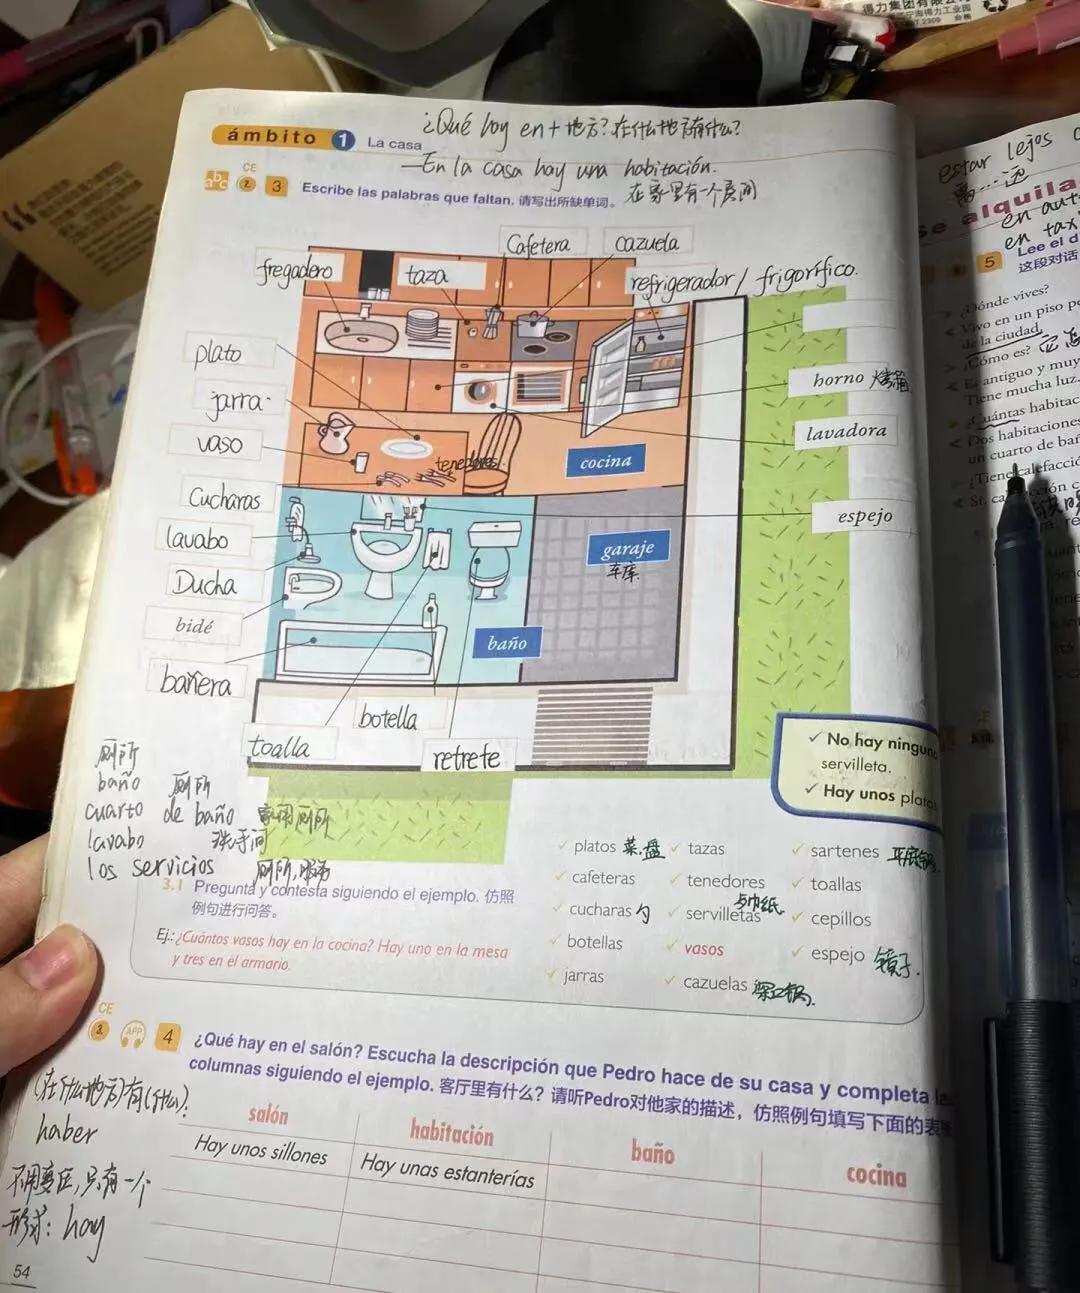 得力集团有限公
¿Qué hay en+地方?在什么地方有什么?
ámbito 1 La casa
—En la casa hay una habitación.
在家里有一个房间
CE
abc 2 3 Escribe las palabras que faltan. 请写出所缺单词。
Cafetera
cazuela
fregadero
taza
refrigerador / frigorífico.
plato
horno 烤箱
jarra
lavadora
vaso
tenedores
cocina
Cucharas
espejo
lavabo
garaje
车库
Ducha
bidé
baño
bañera
botella
toalla
retrete
No hay ninguna
servilleta.
Hay unos platos
厕所
baño 厕所
cuarto de baño 家用厕所
lavabo 洗手间
los servicios 厕所,服务
3.1 Pregunta y contesta siguiendo el ejemplo. 仿照
例句进行问答。
Ej.: ¿Cuántos vasos hay en la cocina? Hay uno en la mesa
y tres en el armario.
platos 菜盘
tazas
sartenes 平底锅
cafeteras
tenedores
toallas
cucharas 勺
servilletas
cepillos
botellas
vasos
espejo 镜子
jarras
cazuelas 深口锅
CE
3 APP 4 ¿Qué hay en el salón? Escucha la descripción que Pedro hace de su casa y completa
columnas siguiendo el ejemplo. 客厅里有什么?请听Pedro对他家的描述,仿照例句填写下面的表
(在什么地方)有(什么):
haber
不用变位,只有一个
形式: hay
salón
habitación
baño
cocina
Hay unos sillones
Hay unas estanterías
54
estar lejos
离…远
se alquila
en aut
en taxi
5 Lee el d
这段对话
¿Dónde vives?
Vivo en un piso
de la ciudad.
¿Cómo es?
Es antiguo y muy
Tiene mucha luz.
¿Cuántas habitac
Dos habitaciones
un cuarto de bañ
¿Tiene calefacció